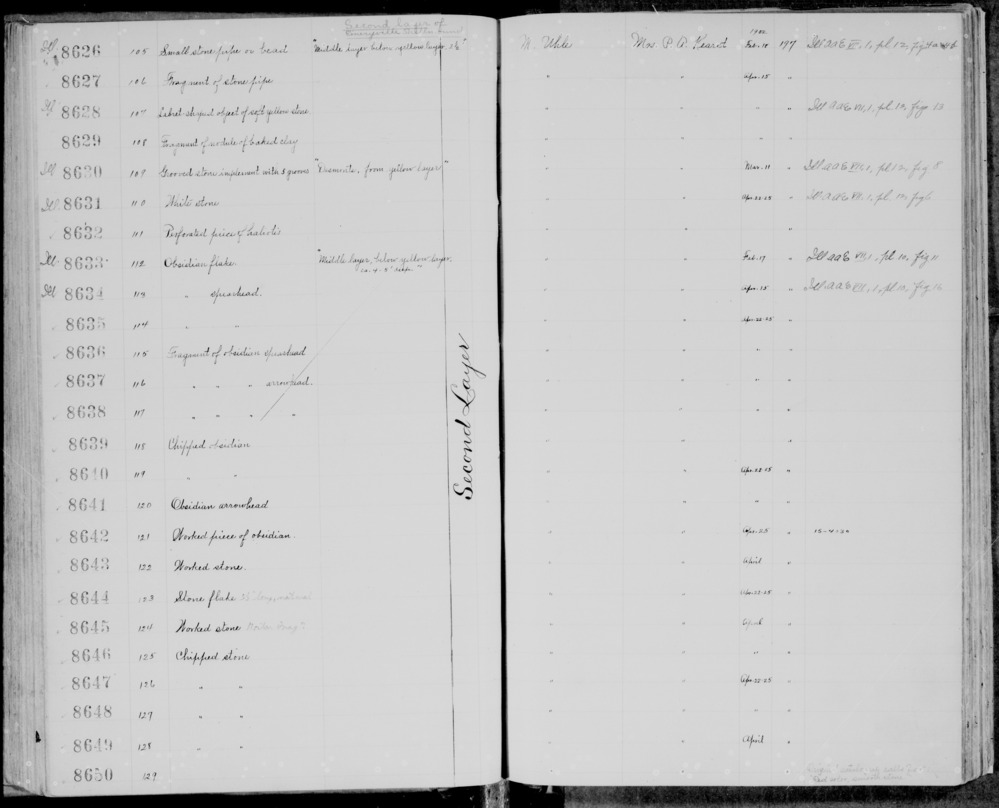 Second layer of
1902
Ill 8626 105 Small stone pipe or bead "Middle layer below yellow layer M. Uhle Mrs. P. A. Hearst Feb. 197 Ill AAE VII, 1, pl. 12, fig
8627 106 Fragment of stone pipe " " Apr. 15 "
8628 107 Labret-shaped object of soft yellow stone " " " " Ill AAE VII, 1, pl. 10, fig. 13
8629 108 Fragment of nodule of baked clay " " " "
Ill 8630 109 Grooved stone implement with 5 grooves from yellow layer" " " Mar. 11 " Ill AAE VII, 1, pl. 12, fig 8
Ill 8631 110 White stone " " Apr. 22-25 " Ill AAE VII, 1, pl. 10, fig 6
8632 111 Perforated piece of haliotis " " " "
Ill 8633 112 Obsidian flake "Middle layer, below yellow layer, " " Feb. 17 " Ill AAE VII, 1, pl. 10, fig. 11
ca. 4-5' deep"
Ill 8634 113 " spearhead. " " Apr. 15 " Ill AAE VII, 1, pl. 10, fig.
8635 114 " " " " Apr. 22-25 "
8636 115 Fragment of obsidian spearhead " " " "
8637 116 " " " arrowhead. " " " "
8638 117 " " " " " " " "
8639 118 Chipped obsidian " " " "
8640 119 " " " " Apr. 22-25 "
8641 120 Obsidian arrowhead " " " "
8642 121 Worked piece of obsidian. " " Apr. 25 " 15-4-20
8643 122 Worked stone. " " April "
8644 123 Stone flake long, natural " " Apr. 22-25 "
8645 124 Worked stone " " April "
8646 125 Chipped stone " " " "
8647 126 " " " " Apr. 22-25 "
8648 127 " " " " " "
8649 128 " " " " April "
8650 129
Second Layer